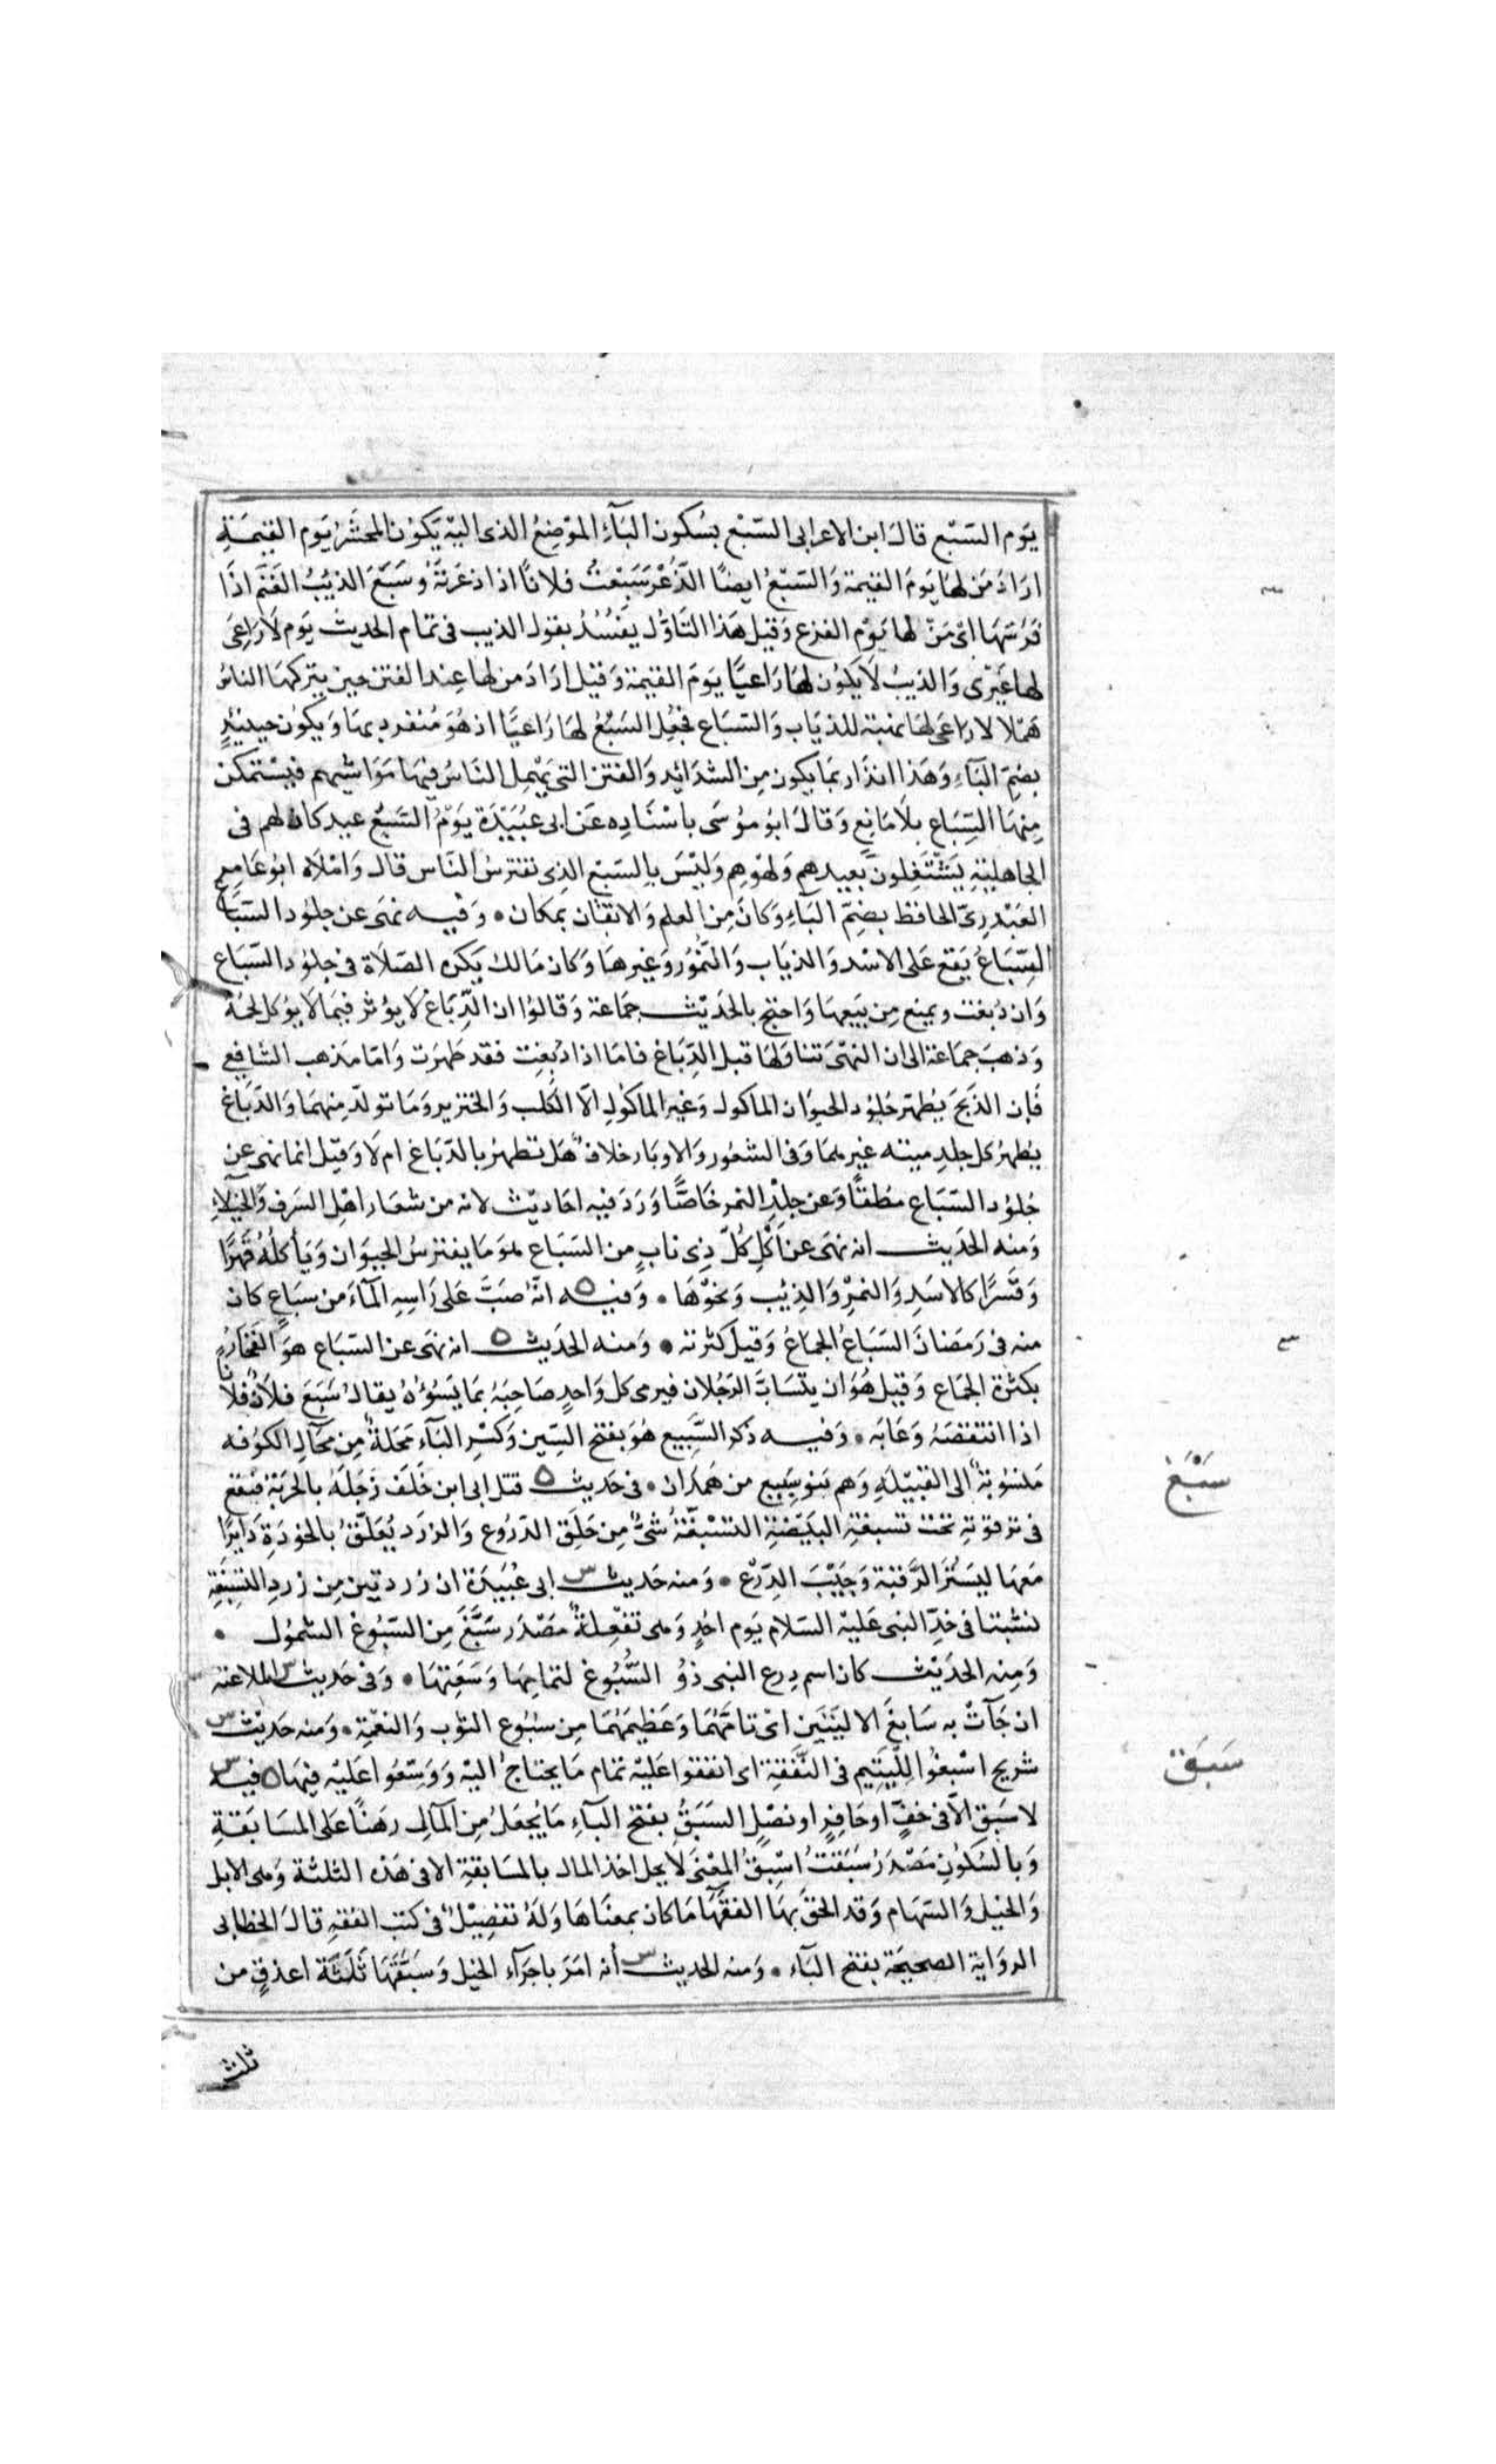 يَوم السَّبْع قالَ ابن الاعرابى السَّبْع بسُكون البَآءِ المَوْضِعُ الذى اليْه يَكوُن المحشَرُ يَوم القيمَةِ
ارَادَ مَن لهَا يَومَ القيمة وَالسَّبْعُ ايضًا الذُّعْر سَبَعْتُ فلانًا اذا ذعَرتَهُ وسَبَعَ الذيبُ الغَنَمَ اذَا
فرَسَهَا اىْ مَنْ لها يَوْم الفزع وَقيل هَذا التَاوُل يَفسُدُ بقول الذيب فى تمام الحديث يَوم لَا رَاعِىَ
لها غَيْرى وَالذيبُ لَا يَكوُن لهَا رَاعيًا يَومَ القيمة وَقيْل ارَادَ من لها عِند الفتن حين يتركهَا الناسُ
هَمَلا لا رَاعىَ لهَا نهبة للذيَاب وَالسّبَاع فجُعِل السَّبُعُ لهَا رَاعيًا اذ هُوَ مُنفرد بهَا وَيكوُن حينئِذٍ
بضمِّ البَآءِ وَهَذا انذار بمَا يكون مِن الشدَائِد وَالفتن التى يُهْمِل النَاسُ فيهَا مَوَاشيهم فيسْتمكن
مِنهَا السِّبَاع بلَا مَانِع وَقالَ ابوُ موُسَى باسْنَادِه عَن ابى عُبَيْدَة يَوْمُ السَّبْع عيد كان لهم فى
الجاهليَّةِ يَشْتَغِلونَ بعيدهم وَلهْوهِم وَليْسَ بِالسَّبُع الذِى تفترسُ النَاس قال وَامْلَاه ابوُ عَامِرٍ
العَبْدرِىّ الحافظ بضمِّ البَآءِ وَكانَ مِن العلم وَالاتقان بمكان • وَفيه نهَى عن جلوُد السّبَاع
السِّبَاعُ يَقع عَلى الاسْد وَالذيَاب وَالنّمُوُر وَغيرهَا وَكان مَالك يَكره الصّلَاة فى جلوُد السّبَاع
وَان دُبغت ويمنع مِن بَيعهَا وَاحتج بالحَديْث جمَاعة وَقالوُا ان الدِّبَاغ لَا يوُثر فيمَا لَا يوُكل لحمُه
وَذهبَ جمَاعة الى ان النهْىَ تناوَلهَا قبل الدِّبَاغ فامَا اذا دُبغِت فقد طهُرَت وَامّا مَذهب الشافعِى
فَإن الذَبْحَ يُطهّر جُلوُد الحيوَان الماكول وَغير الماكول الَّا الكَلب وَالخنزير وَمَا تولدَ مِنهمَا وَالدِّبَاغ
يُطهرُ كل جلدِ ميتة غيرهمَا وَفى الشعُور وَالاوبَار خلافٌ هَل تطهرُ بالدّبَاغ ام لَا وَقيْل انما نهَى عن
جُلوُد السّبَاع مطقًا وَعن جلدِ النمر خَاصَّا وَرَدَ فيه احَاديْث لانه من شعَار اهْل السَرف وَالخيلَاءِ
وَمنه الحَديث انه نهَى عن أكْلِ كُلّ ذِى نابٍ من السَبَاع هوَ مَا يفترسُ الحيوَان وَيَأكلُهُ قهرًا
وَقَسْرًا كالاسَدِ وَالنمِرْ وَالذيب وَنحْوهَا • وَفيه انَّهُ صَبَّ عَلى رَاسِهِ المآءَ من سبَاعٍ كان
منه فى رَمَضانَ السَبَاعُ الجماعُ وَقيلَ كثرته • وَمنه الحَديث انه نهَى عن السبَاع هوَ الفَخَارُ
بكثرة الجمَاع وَقيل هُوَ ان يتَسَابَّ الرَجُلان فيرمى كل وَاحدٍ صَاحِبَهُ بمَا يَسُوُءُهُ يقالُ سَبَعَ فلَانٌ فلانًا
اذا انتقصَهُ وَعَابَه • وَفيه ذكر السَّبِيع هُوَ بفتح السِّين وَكسْر البَآء مَحَلةٌ مِن مَحَالِّ الكوُفه
مَنسُوبَةٌ الى القبيْلَةِ وَهم بَنو سَبِيع من همدَان • فى حَديث قتل ابى ابن خَلَف زَجَلَهُ بالحَرْبَة فتقع
فى ترقوته تحت تسبغةِ البَيْضَةِ التَسْبغَةُ شَىٌ مِن حَلَق الدّروُع وَالزرَد يُعَلقُ بالخوُدَةِ دَائِرًا
مَعهَا ليَسْتُرَ الرَّقبَة وَجَيْبَ الدِّرْع • وَمنه حَديث س ابى عُبَيدَة ان زردتين مِن زردِ التسْبغَةِ
نشبتا فى خَدِّ النبى عَليْه السَلام يَوم احُدٍ وَهى تفعِلةٌ مَصْدَر سَبَّغَ مِن السُبُوغ الشموُل •
وَمِنه الحَديْث كان اسم دِرع النبى ذوُ السُّبُوغ لتمامِهَا وَسَعَتهَا • وَفى حَديث س الملاعنة
ان جَآتْ به سَابغَ الاليَتَين اىْ تامَّهُمَا وَعَظيمَهُمَا مِن سُبُوع الثوب وَالنعْمَةِ • وَمنه حَديْث س
شريح اسْبغوُا لليَتِيم فى النَّفقةِ اى انفقوا عَليْه تمام مَا يحتاجُ اليْه وَوَسّعوُا عَليْه فيهَا ه فيه س
لا سَبَق الَّا فى خفٍّ او حَافِرٍ او نصْلٍ السَبَقُ بفتح البَآءِ مَا يُجعَلُ مِن المآلِ رهنًا عَلى المسَابَقةِ
وَبالسُكوُنِ مَصْدَرُ سَبَقتُ اسْبِقُ المعْنَى لَا يحل اخذ المال بالمسَابقةِ الا فى هَذه الثلثة وَهى الابل
وَالخيْل وَالسّهَام وَقد الحقَ بهَا الفقهَا مَا كان بمعنَاهَا وَلهُ تفصِيْلٌ فى كتب الفقهِ قالَ الخطابى
الروَاية الصحيحَة بفتح البَآء • وَمنه الحديث س أنه امَرَ باجرَآءِ الخيل وَسَبَّقَهَا ثَلَثَة اعذقٍ من
ثلث
سَبَغَ
سَبَقَ